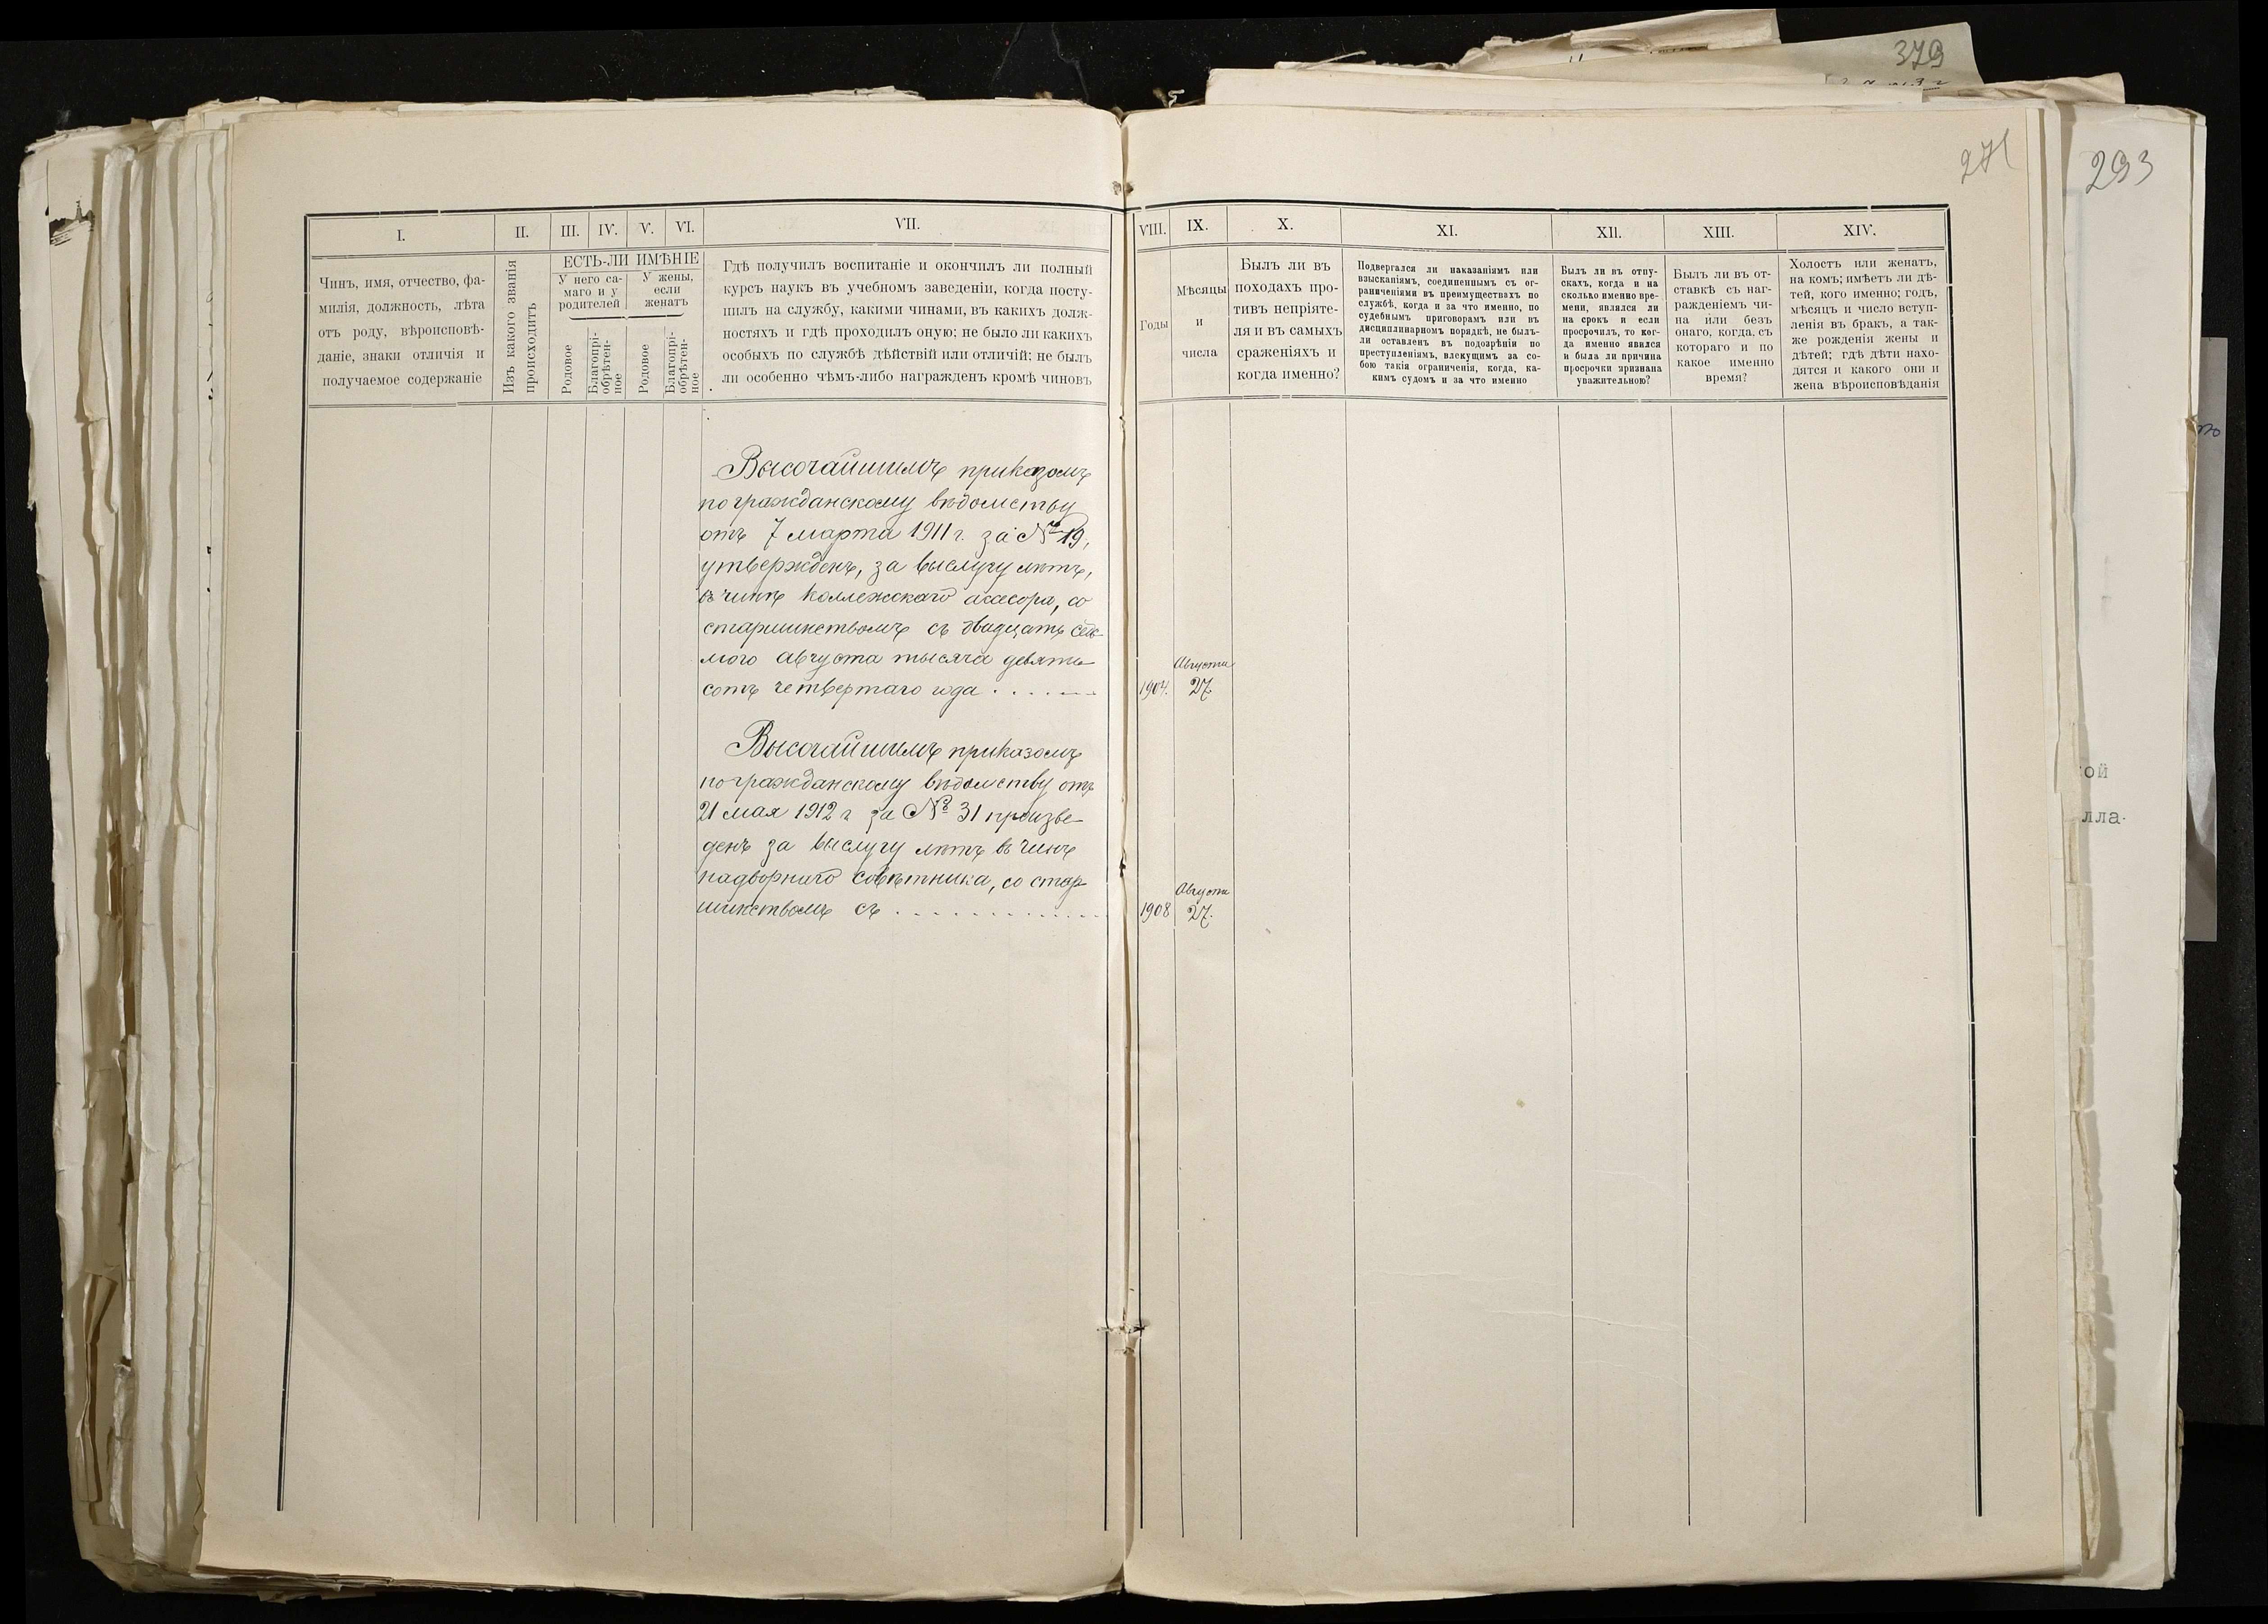 379
271
293
I.
II.
III.
IV.
V.
VI.
VII.
VIII.
IX.
X.
XI.
XII.
XIII.
XIV.
Чинъ, имя, отчество, фа-
милія, должность, лѣта
отъ роду, вѣроисповѣ-
даніе, знаки отличія и
получаемое содержаніе
Изъ какого званія
происходитъ
ЕСТЬ-ЛИ ИМѢНІЕ
У него са-
маго и у
родителей
У жены,
если
женатъ
Родовое
Благопрі-
обрѣтен-
ное
Родовое
Благопрі-
обрѣтен-
ное
Гдѣ получилъ воспитаніе и окончилъ ли полный
курсъ наукъ въ учебномъ заведеніи, когда посту-
пилъ на службу, какими чинами, въ какихъ долж-
ностяхъ и гдѣ проходилъ оную; не было ли какихъ
особыхъ по службѣ дѣйствій или отличій; не былъ
ли особенно чѣмъ-либо награжденъ кромѣ чиновъ
Годы
Мѣсяцы
и
числа
Былъ ли въ
походахъ про-
тивъ непріяте-
ля и въ самыхъ
сраженіяхъ и
когда именно?
Подвергался ли наказаніямъ или
взысканіямъ, соединеннымъ съ ог-
раниченіями въ преимуществахъ по
службѣ, когда и за что именно, по
судебнымъ приговорамъ или въ
дисциплинарномъ порядкѣ, не былъ-
ли оставленъ въ подозрѣніи по
преступленіямъ, влекущимъ за со-
бою такія ограниченія, когда, ка-
кимъ судомъ и за что именно
Былъ ли въ отпу-
скахъ, когда и на
сколько именно вре-
мени, являлся ли
на срокъ и если
просрочилъ, то ког-
да именно явился
и была ли причина
просрочки признана
уважительною?
Былъ ли въ от-
ставкѣ съ наг-
ражденіемъ чи-
на или безъ
онаго, когда, съ
котораго и по
какое именно
время?
Холостъ или женатъ,
на комъ; имѣетъ ли дѣ-
тей, кого именно; годъ,
мѣсяцъ и число вступ-
ленія въ бракъ, а так-
же рожденія жены и
дѣтей; гдѣ дѣти нахо-
дятся и какого они и
жена вѣроисповѣданія
Высочайшимъ приказомъ
по гражданскому вѣдомству
отъ 7 марта 1911 г. за № 19,
утвержденъ, за выслугу лѣтъ,
въ чинѣ коллежскаго асесора, со
старшинствомъ съ двадцать седь-
мого августа тысяча девять-
сотъ четвертаго года . . . . . .
1904.
Августа
27
Высочайшимъ приказомъ
по гражданскому вѣдомству отъ
21 мая 1912 г за № 31 произве-
денъ за выслугу лѣтъ въ чинъ
надворнаго совѣтника, со стар-
шинствомъ съ . . . . . . . . . . . . .
1908
Августа
27.
ой
лла-